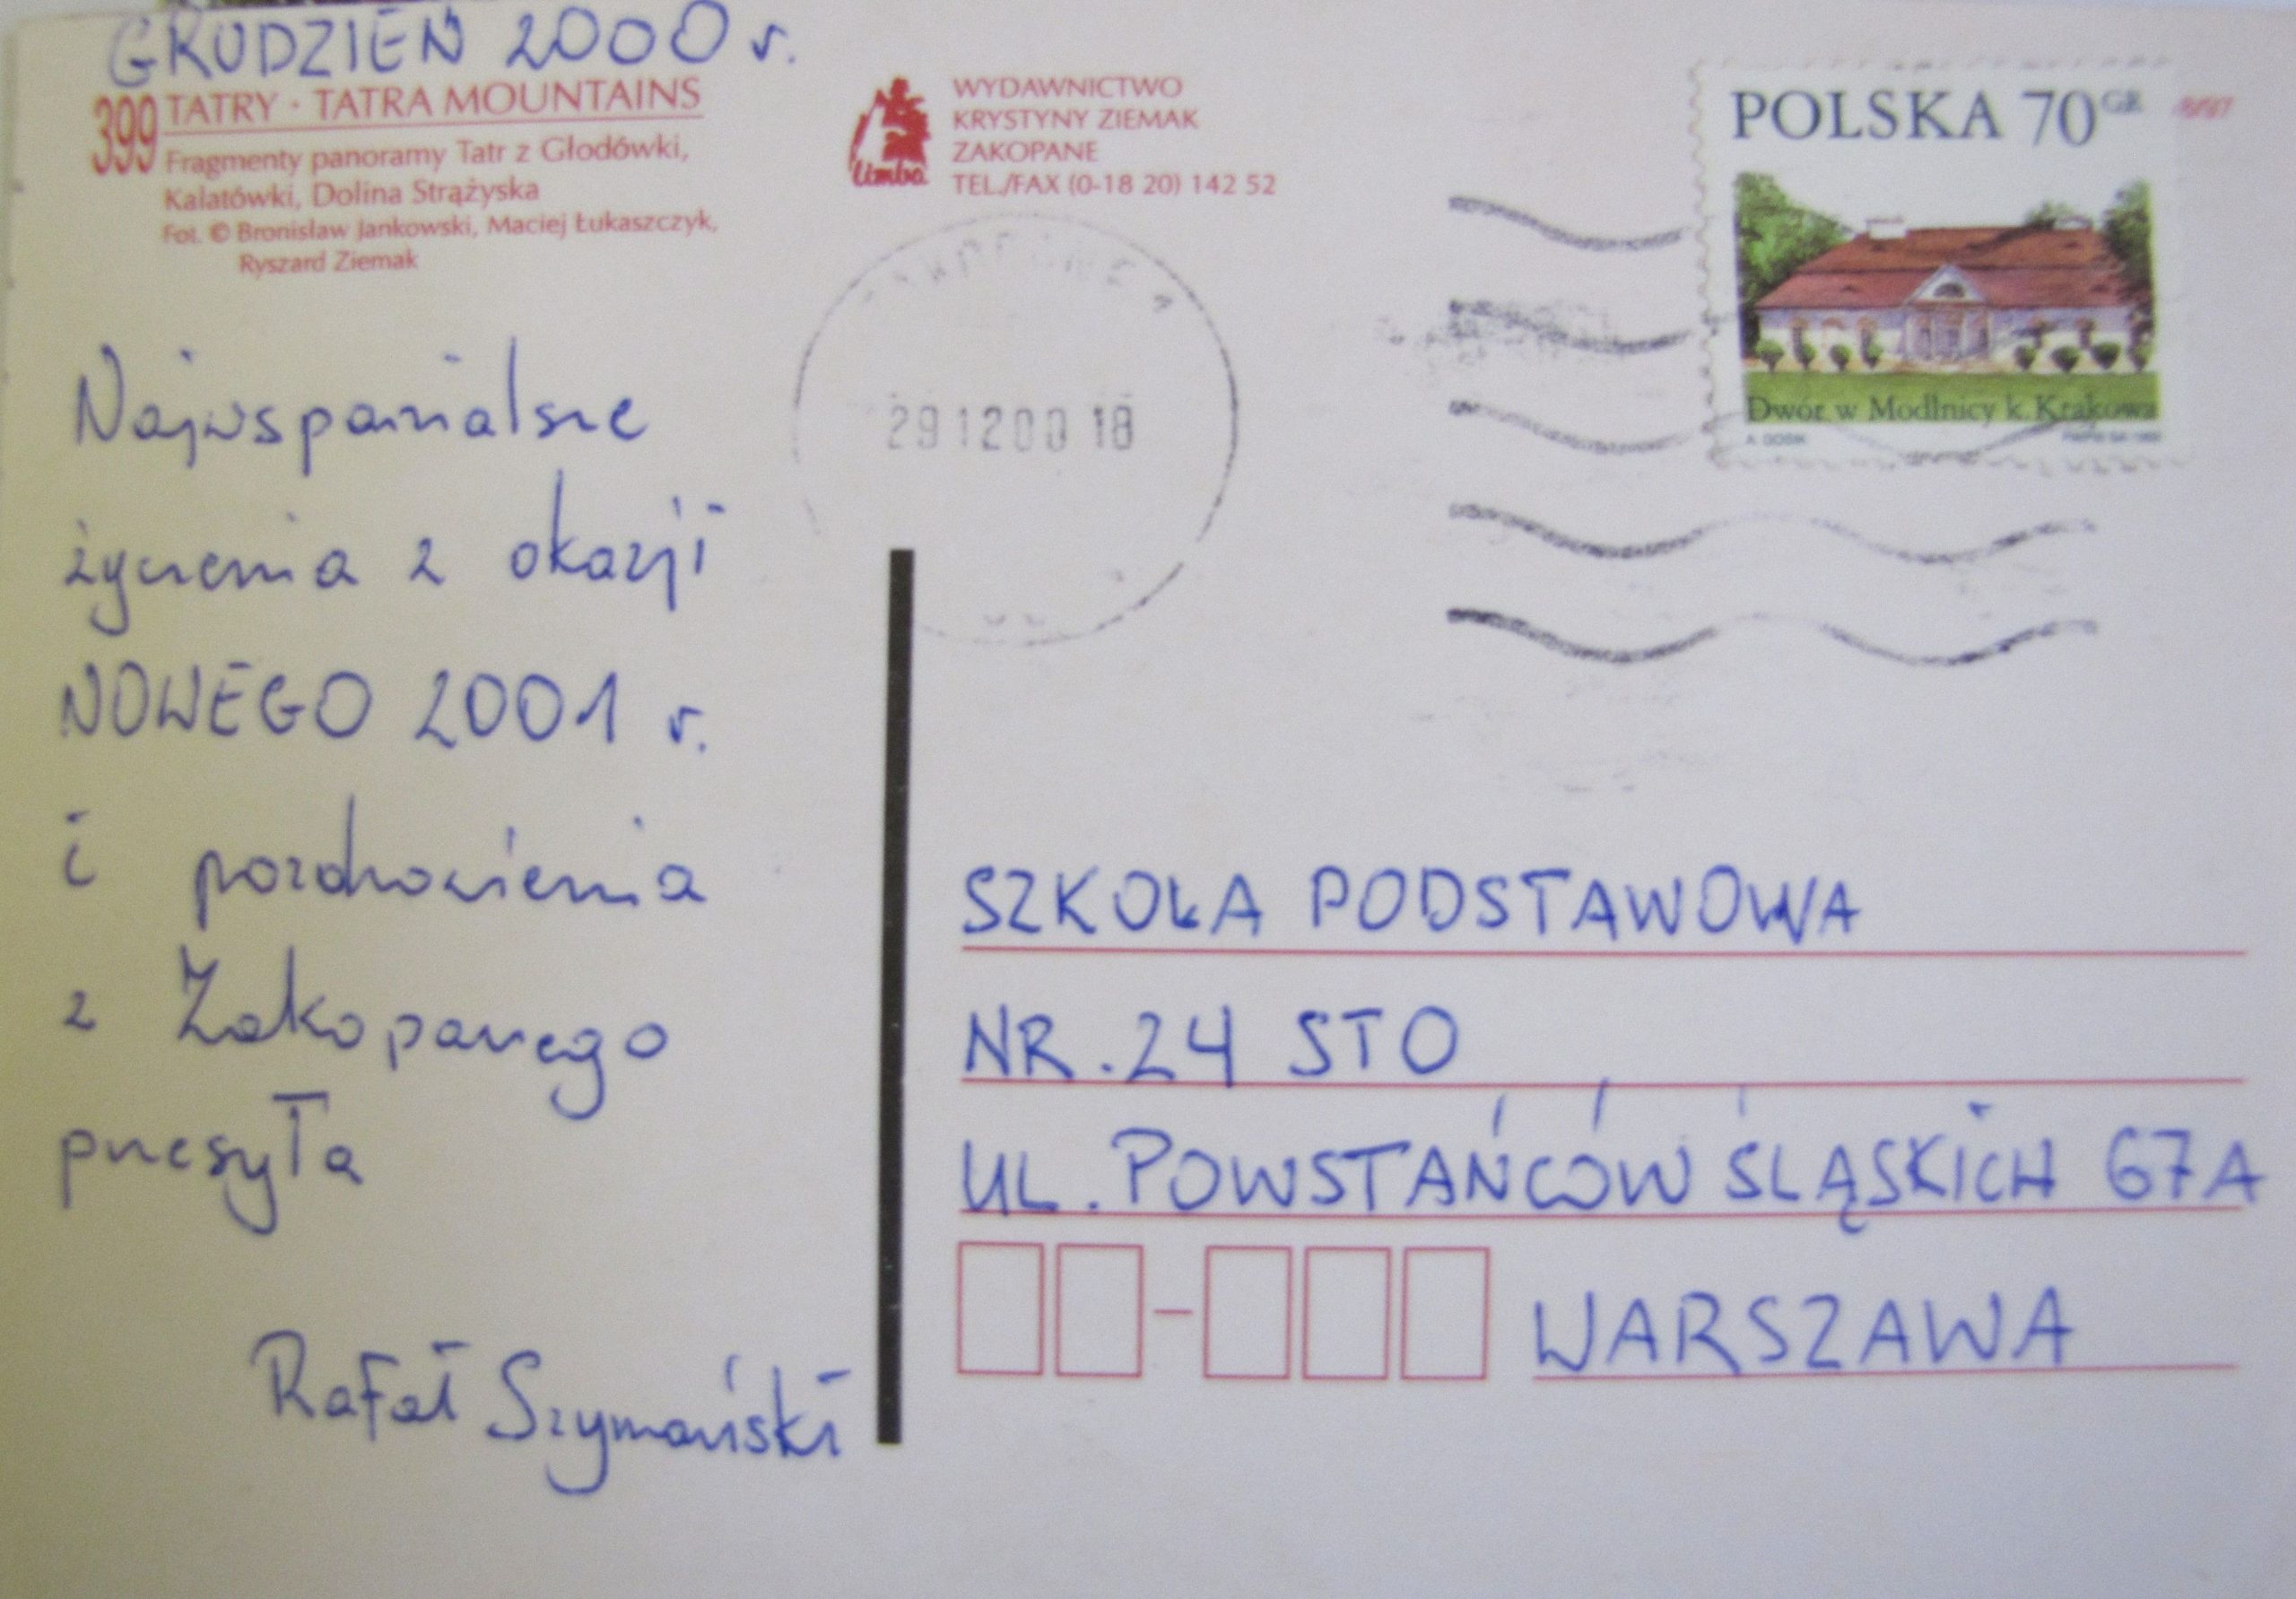 GRUDZIEŃ 2000 r.
399 TATRY · TATRA MOUNTAINS
Fragmenty panoramy Tatr z Głodówki,
Kalatówki, Dolina Strążyska
Fot. © Bronisław Jankowski, Maciej Łukaszczyk,
Ryszard Ziemak
limba
WYDAWNICTWO
KRYSTYNY ZIEMAK
ZAKOPANE
TEL./FAX (0-18 20) 142 52
POLSKA 70 GR
Dwór w Modlnicy k. Krakowa
291200 18
Najwspanialsze
życzenia z okazji
NOWEGO 2001 r.
i pozdrowienia
z Zakopanego
przesyła
Rafał Szymański
SZKOŁA PODSTAWOWA
NR. 24 STO
UL. POWSTAŃCÓW ŚLĄSKICH 67A
WARSZAWA